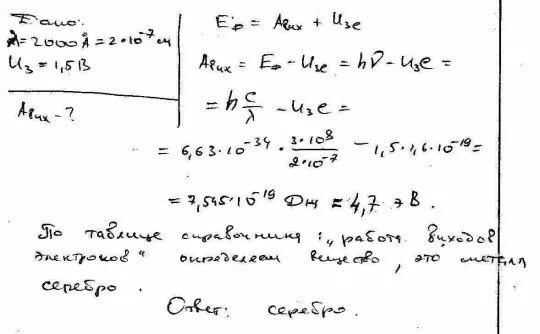 Дано:
λ = 2000 Å = 2·10⁻⁷ м
U₃ = 1,5 В
Aвых - ?
Eф = Aвых + U₃e
Aвых = Eф - U₃e = hν - U₃e =
= h c/λ - U₃e =
= 6,63·10⁻³⁴ · 3·10⁸/2·10⁻⁷ - 1,5·1,6·10⁻¹⁹ =
= 7,545·10⁻¹⁹ Дж = 4,7 эВ.
По таблице справочника : „работа выходов
электронов“ определяем вещество, это металл
серебро.
Ответ: серебро.